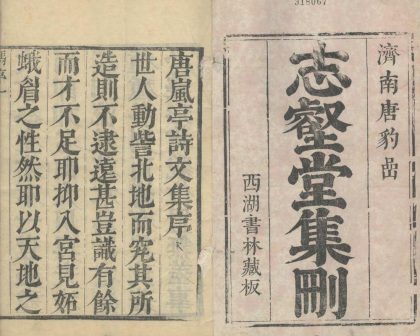 318067
濟南唐豹嵒
志壑堂集刪
西湖書林藏板
唐嵐亭詩文集序
世人動皆北地而究其所
造則不逮遠甚豈識有餘
而才不足耶抑入宮見妬
蛾眉之性然耶以天地之